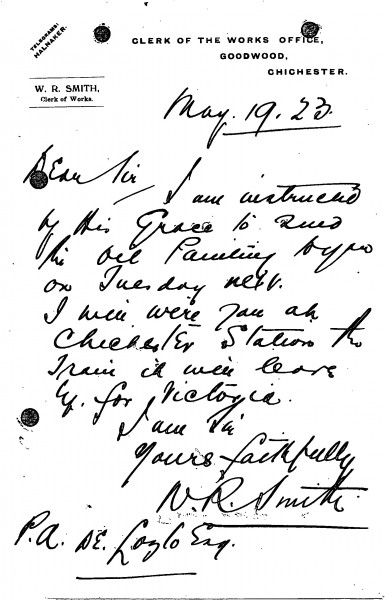 TELEGRAMS:
HALNAKER.
CLERK OF THE WORKS OFFICE,
GOODWOOD,
CHICHESTER.
W. R. SMITH,
Clerk of Works.
May. 19. 23.
Dear Sir
I am instructed
by His Grace to send
the Oil Painting
on Tuesday next.
I will wire you at
Chichester Station the
Train it will leave
by. for Victoria.
I am Sir
Yours faithfully
W. R. Smith
P.A. de. Esq.